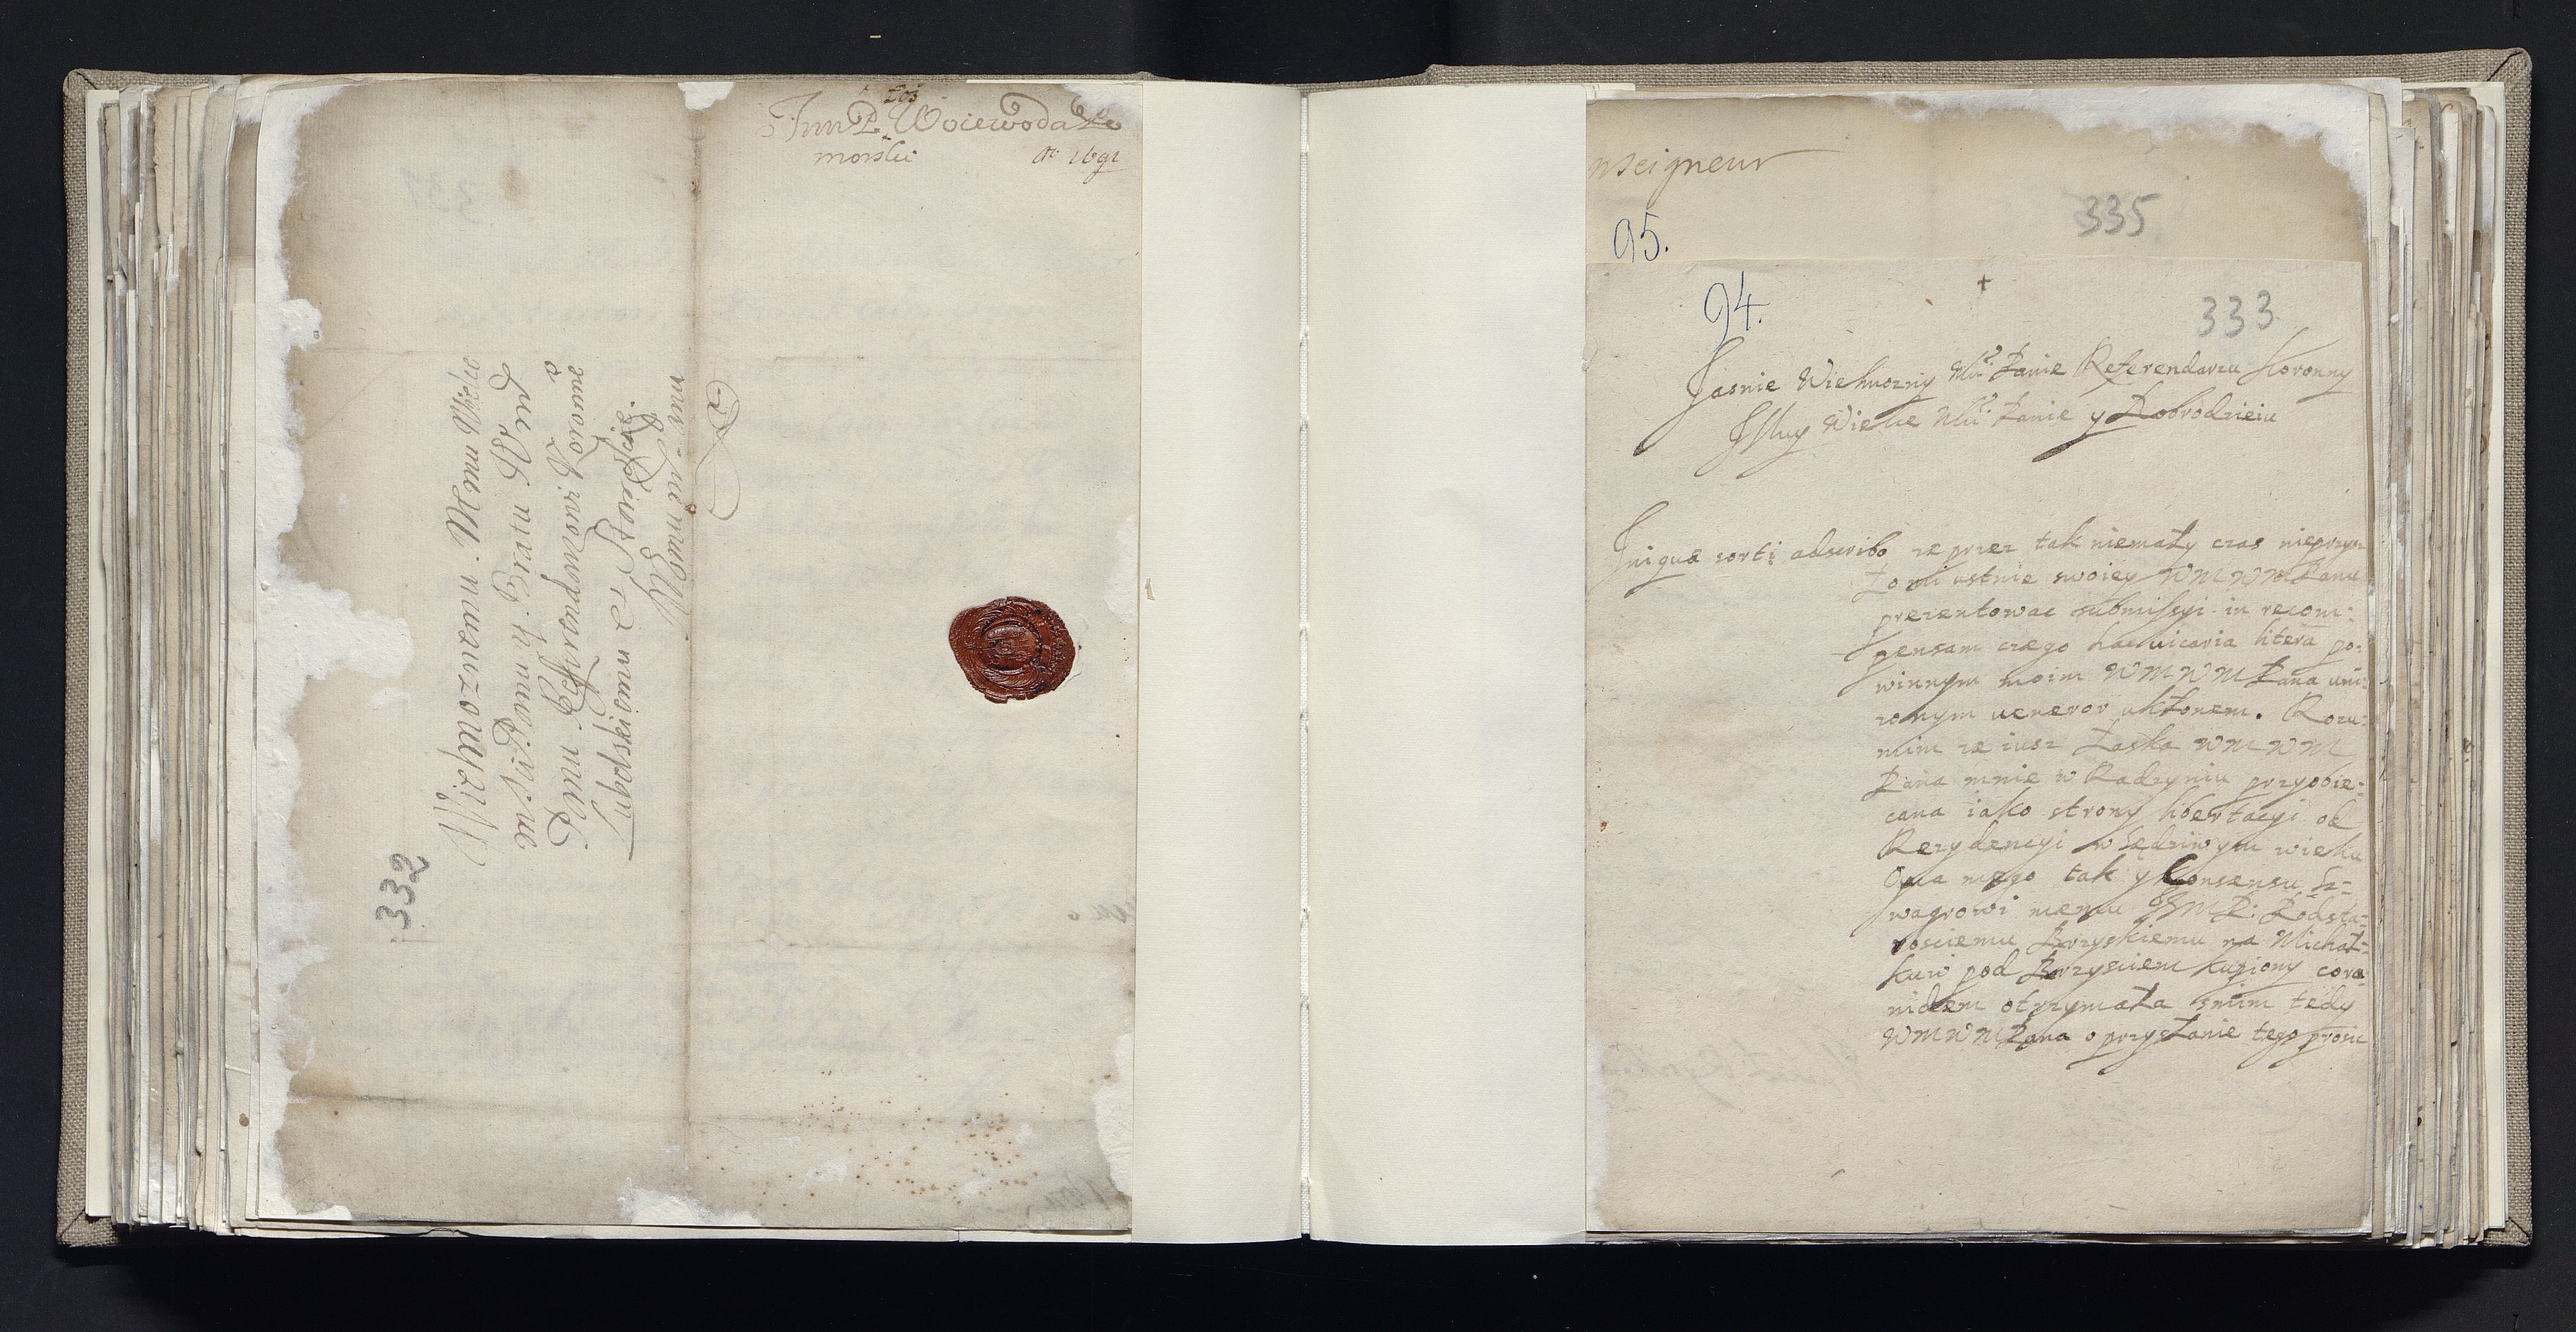 Łoś
JmP. Woiewoda Po
morski Ao 1691
332
Wielmoznemu Mmu Wielce
Msu Panu y Bratu Jmd
Panu Referendarzowi Koronne
Lubelskiemu Staroscie.
nseigneur
335
95.
94.
333
Jasnie Wielmozny Mci Panie Referendarzu Koronny
Mnie Wielce Mci Panie y Dobrodzieiu
Iniquæ sorti adscribo ze przez tak niemały czas nieprzysz
ło mi ustnie swoiey WMWMPanu
prezentowac submissyi in recom:
pensam czego hac vicaria litera po:
winnym moim WMWMPana uni:
zonym veneror ukłonem. Rozu:
mim ze iusz łaska WMWM
Pana mnie w Radzyniu przyobie:
cana iako strony libertacyi od
Rezydencyi w sędziwym wieku
Oyca mego tak y Konsensu Sz=
wagrowi memu JMP: Podsta:
rosciemu Brzyskiemu na Michał:
kuw pod Brzysciem kupiony coro
nidem otrzymała smim tedy
WMWMPana o przysłanie tego prosic